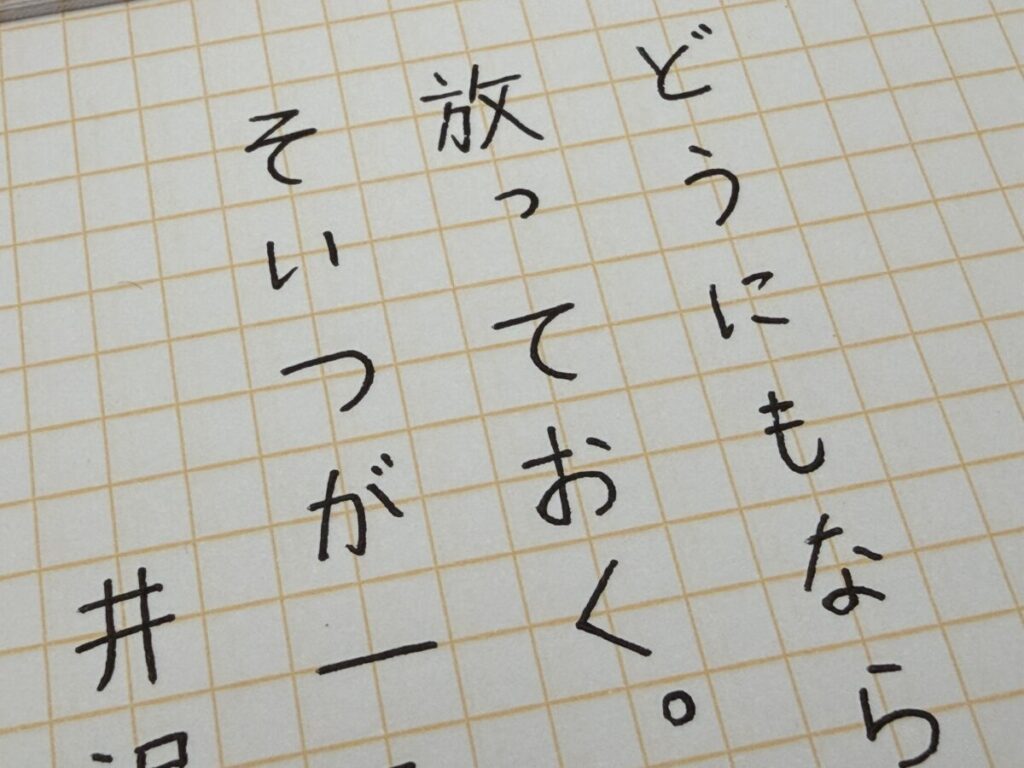 どうにもなら
放っておく。
そいつが一
井